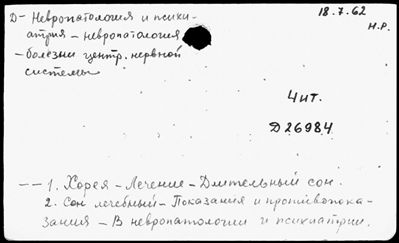 D - Невропатология и психи-
атрия - невропатология
- болезни центр. нервной
системы
18.7.62
Н.Р.
4 чт.
Д 26984
-- 1. Хорея - Лечение - Длительный сон.
2. Сон лечебный - Показания и противопока-
зания - В невропатологии и психиатрии.